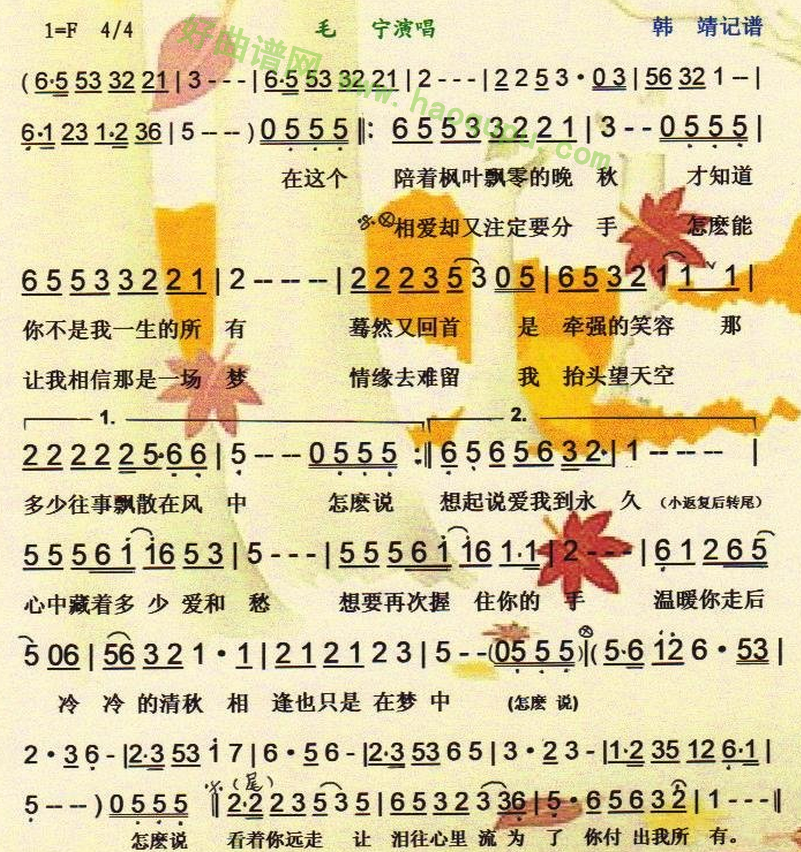 1=F 4/4 毛 宁演唱 韩 靖记谱
好曲谱网 www.haoqupu.com
( 6·5 53 32 21 | 3 - - - | 6·5 53 32 21 | 2 - - - | 2 2 5 3 · 0 3 | 56 32 1 -- |
6·1 23 1·2 36 | 5 -- -- ) 0 5 5 5 ‖: 6 5 5 5 3 2 2 1 | 3 - - 0 5 5 5 |
在这个 陪着枫叶飘零的晚 秋 才知道
相爱却又注定要分 手 怎麽能
6 5 5 3 3 2 2 1 | 2 -- -- -- | 2 2 2 3 5 3 0 5 | 6 5 3 2 1 1 1 |
你不是我一生的所 有 蓦然又回首 是 牵强的笑容 那
让我相信那是一场 梦 情缘去难留 我 抬头望天空
1. 2.
2 2 2 2 2 5·6 6 | 5 -- -- 0 5 5 5 :‖ 6 5 6 5 6 3 2· | 1 -- -- -- |
多少往事飘散在风 中 怎麽说 想起说爱我到永 久 (小返复后转尾)
5 5 5 6 1 16 5 3 | 5 - - - | 5 5 5 6 1 16 1·1 | 2 - - - | 6 1 2 6 5
心中藏着多 少 爱和 愁 想要再次握 住你的 手 温暖你走后
5 06 | 56 3 2 1 · 1 | 2 1 2 1 2 3 | 5 -- (0 5 5 5) ‖ ( 5·6 12 6 · 53 |
冷 冷 的清秋 相 逢也只是 在梦 中 (怎麽 说)
2 · 3 6 - | 2·3 53 1 7 | 6 · 5 6 - | 2·3 53 6 5 | 3 · 2 3 - | 1·2 35 12 6·1 |
5 -- -- ) 0 5 5 5 ‖ (尾) 2·2 2 3 5 3 5 | 6 5 3 2 3 36 | 5 · 6 5 6 3 2 | 1 - - - ‖
怎麽说 看着你远走 让 泪往心里 流 为 了 你付 出我所 有。